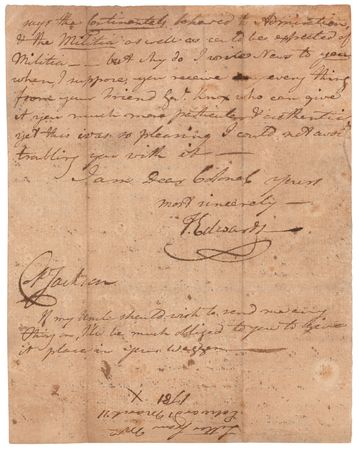 says the Continentals behaved to Admiration,
& the Militia as well as could be expected of
Militia — but why do I write News to you
when I suppose you receive every thing
from your friend Knox who can give
it you much more particular & authentic
yet this was so pleasing I could not
troubling you with it —
I am Dear Colonel yours
most sincerely —
Edwards
Jackson
If my Uncle should wish to send me any
thing, be much obliged to you to give
it place in your Waggon —
1781
Edwards
Letter from